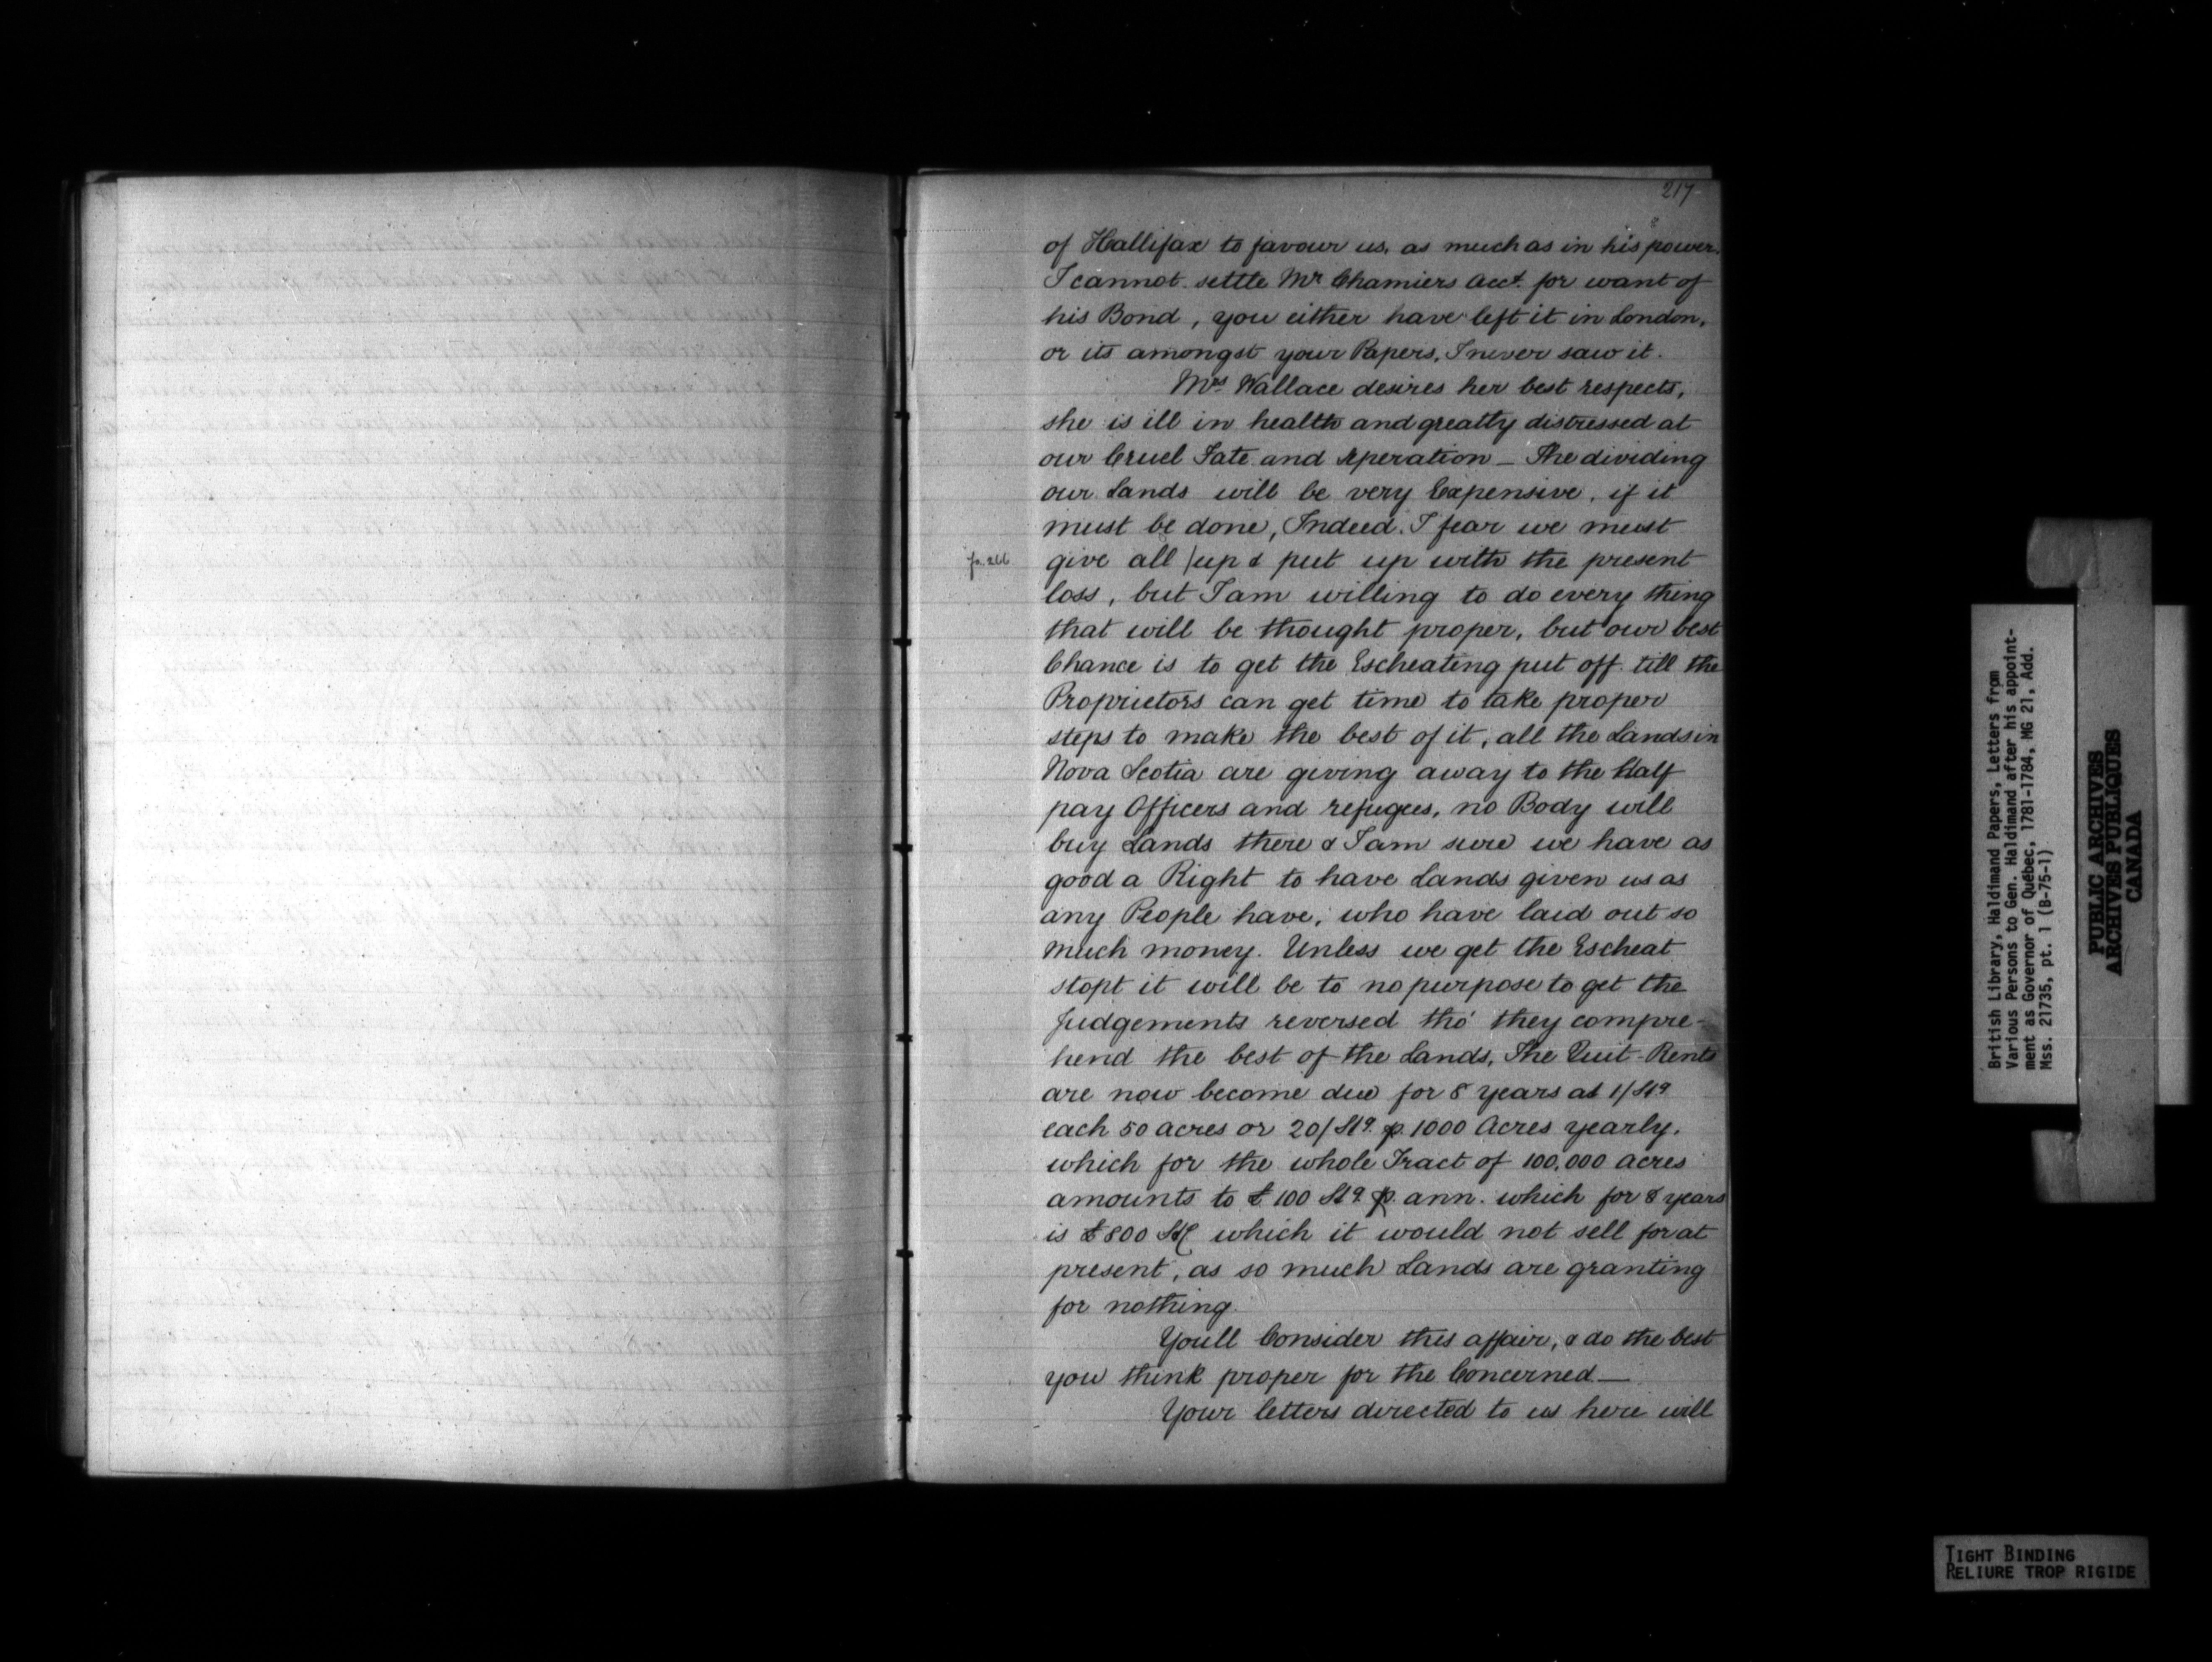 217
of Hallifax to favour us, as much as in his power.
I cannot settle Mr Chamiers Acct. for want of
his Bond, you either have left it in London,
or its amongst your Papers, I never saw it.
Mrs Wallace desires her best respects,
she is ill in health and greatly distressed at
our Cruel Fate and seperation — The dividing
our Lands will be very Expensive, if it
must be done, Indeed I fear we must
fo. 266
give all /up & put up with the present
loss, but I am willing to do every thing
that will be thought proper, but our best
Chance is to get the Escheating put off till the
Proprietors can get time to take proper
steps to make the best of it, all the Lands in
Nova Scotia are giving away to the Half
pay Officers and refugees, no Body will
buy Lands there & I am sure we have as
good a Right to have Lands given us as
any People have, who have laid out so
much money. Unless we get the Escheat
stopt it will be to no purpose to get the
Judgements reversed tho' they compre-
hend the best of the Lands, The Quit-Rents
are now become due for 8 years at 1/Stg
each 50 acres or 20/Stg. p. 1000 Acres yearly,
which for the whole Tract of 100,000 acres
amounts to £100 Stg. p. ann. which for 8 years
is £800 Stg which it would not sell for at
present, as so much Lands are granting
for nothing.
Youll Consider this affair, & do the best
you think proper for the Concerned —
Your letters directed to us here will
British Library, Haldimand Papers, Letters from
Various Persons to Gen. Haldimand after his appoint-
ment as Governor of Québec, 1781-1784, MG 21, Add.
Mss. 21735, pt. 1 (B-75-1)
PUBLIC ARCHIVES
ARCHIVES PUBLIQUES
CANADA
TIGHT BINDING
RELIURE TROP RIGIDE